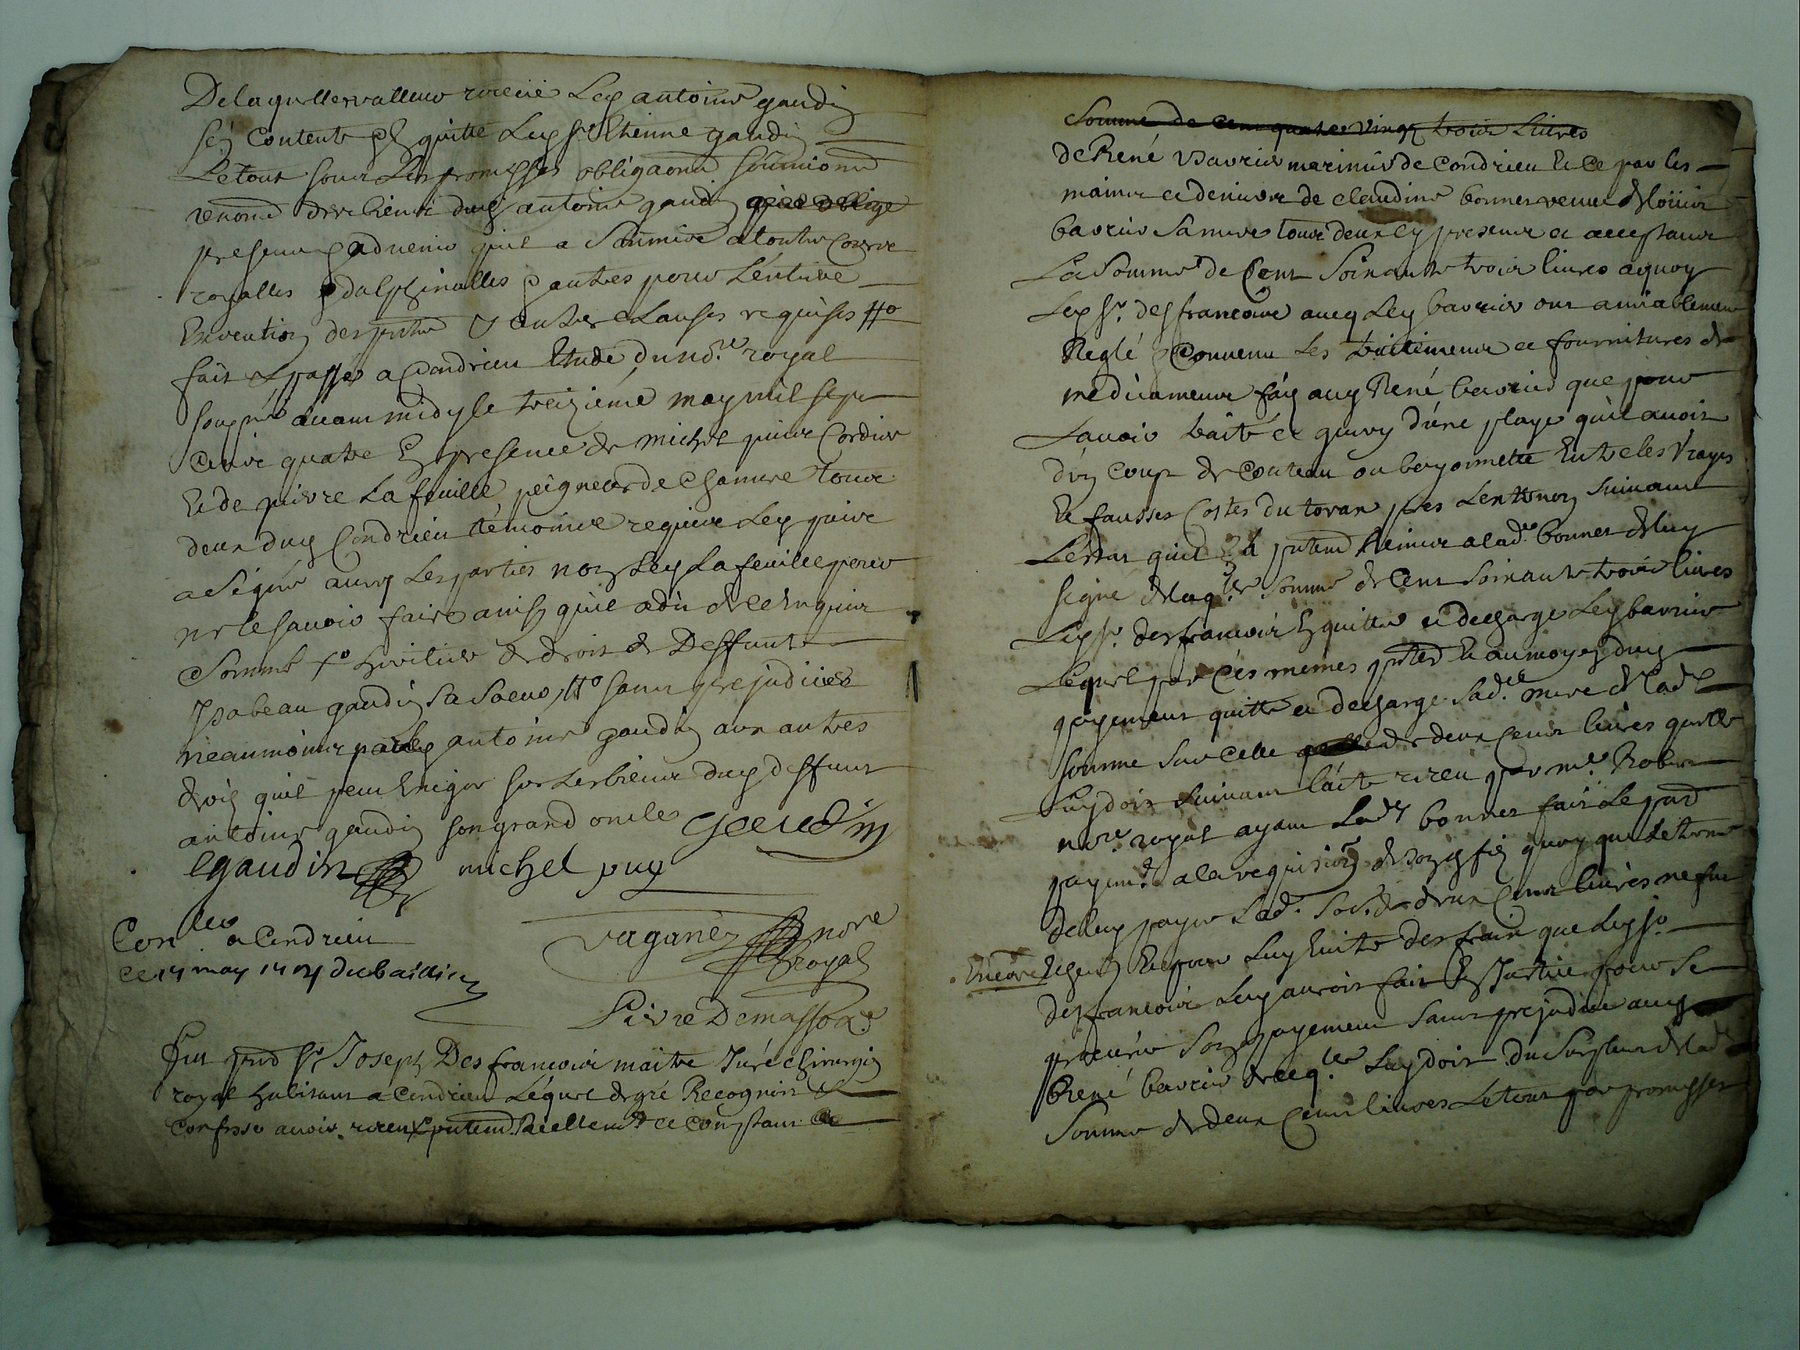 De laquelle valleur receüe Led antoine gaudin
sen Contente et quitte Led Sr Etienne gaudin
Le tout sous Les promesses obligaons soumions
renons des biens dud antoine gaudin
presens et advenir quil a Soumis a toutes Cours
royalles et dalphinalles et autres pour Lentiere
Execution des pntes et autres clauses requises
fait et passé a Condrieu Etude du nore royal
soussigné avant midy le treizième may mil sept
Cents quatre En presence de michel puis Cordier
Et de pierre La feuille peigneur de chanvre tous
deux dud Condrieu témoins requis Led puis
a signé avecq Les parties non Led La feuille pour
ne le savoir faire ainsy quil a dit de ce Enquis
Sommé et heritier de droit de Deffunte
Isabeau gaudin Sa Soeur sans prejudice
neaumoins aud antoine gaudin aux autres
droits quil peut Exiger sur Les biens dud deffunt
antoine gaudin son grand oncle gaudin
egaudin michel puy
Conlleo a Condrieu
ce 14 may 1704 dubaillier
nore
royal
Fut pnt Sr Joseph Des francois maitre Juré chirurgien
royal habitant a Condrieu Léquel de gré Recognoit et
confesse avoir receu pntement Réellemt et Comptant de
Somme de cent quatre vingt trois livres
de René bavrier marinier de Condrieu Et ce par les
mains et deniers de claudine bonnet veuve de
bavrier Sa mere tous deux Cy presens et acceptans
La Somme de Cent Soixante trois livres a quoy
Led Sr desfrancois avecq Led bavrier ont amiablement
Reglé et Convenu Les traitemens et fournitures de
medicamens fais aud René bavrier que pour
Lavoir traité et guery d'une playe quil avoit
d'un coup de Couteau ou bayonnette Entre les Vrayes
Et fausses Costes du
Lestat quil a pntemt Remis a lad bonnet de luy
signé de laqlle Somme de Cent Soixante trois livres
Led Sr desfrancois En quitte et decharge Led bavrier
Léquel par Ces memes pntes Et au moyen dud
payement quitte et decharge Sad mere de lad
somme Sur Celle de deux Cents livres quelle
Luy doit Suivant lacte receu par me Robin
nore royal ayant Lad bonnet fait Le pnt
payemt a la requisition de sond fils quoy que le terme
de luy payer lad Some de deux Cents livres ne fut
Encore Et pour Luy Eviter des frais que Led Sr
desfrancois Luy auroit fait En Justice pour Se
procurer Son payement Sans prejudice aud
René bavrier de ce qlle Luy doit du Surplus de lad
Somme de deux Cents livres Le tout par promesses